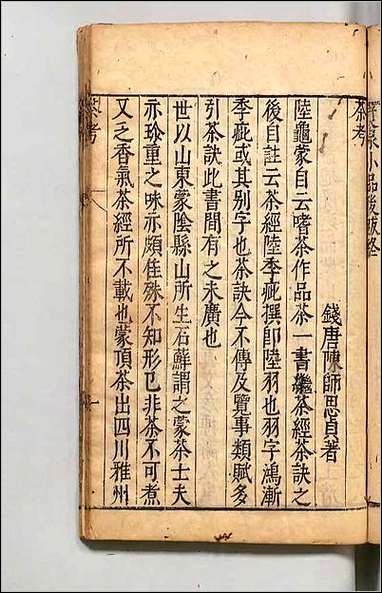 茶考
錢唐陳師思貞著
陸龜蒙自云嗜茶作品茶一書繼茶經茶訣之
後自註云茶經陸季疵撰卽陸羽也羽字鴻漸
季疵或其別字也茶訣今不傳及覽事類賦多
引茶訣此書間有之未廣也
世以山東蒙陰縣山所生石蘚謂之蒙茶士夫
亦珍重之味亦頗佳殊不知形已非茶不可煮
又乏香氣茶經所不載也蒙頂茶出四川雅州
茶考
一